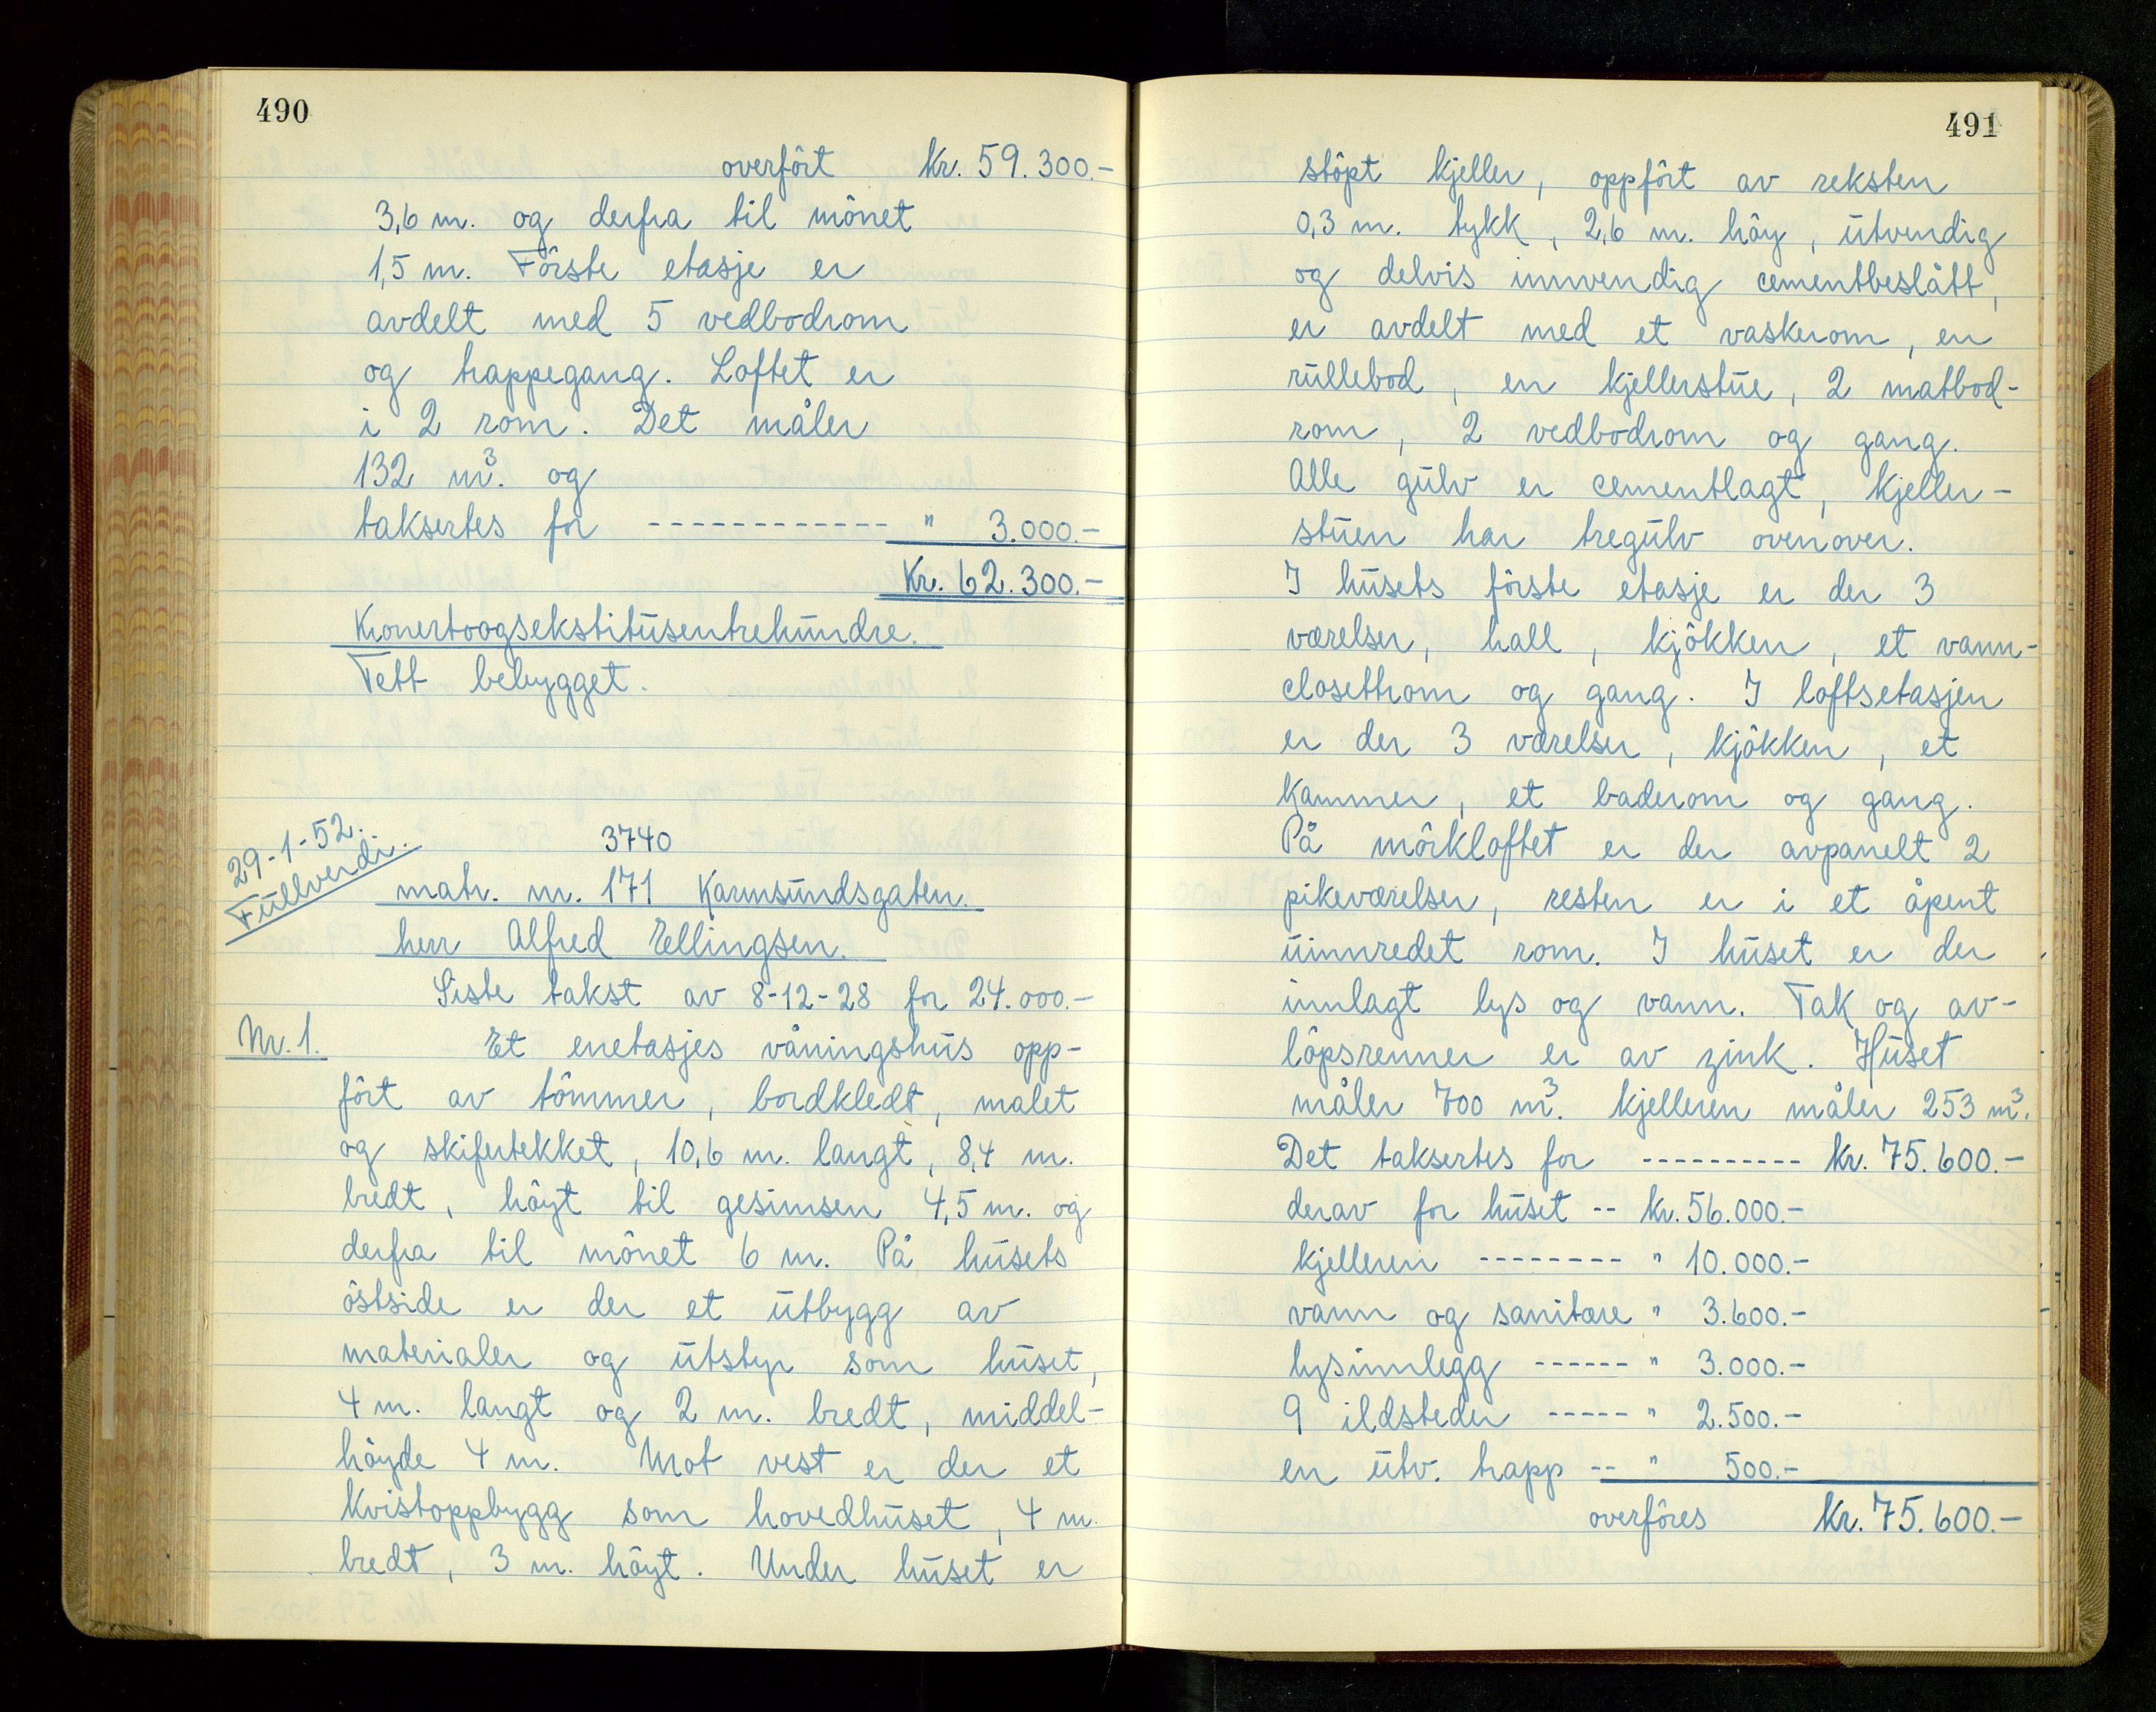 490
overført kr. 59.300.-
3,6 m. og derfra til mønet
1,5 m. Første etasje er
avdelt med 5 vedbodrom
og trappegang. Loftet er
i 2 rom. Det måler
132 m³. og
taksertes for ------------ " 3.000.-
Kr. 62.300.-
Kronertoogsekstitusentrehundre.
Tett bebygget.
29-1-52.
Fullverdi.
3740
matr. nr. 171 Karmsundsgaten.
herr Alfred Ellingsen.
Siste takst av 8-12-28 for 24.000.-
Nr. 1. Et enetasjes våningshus opp-
ført av tømmer, bordkledt, malet
og skifertekket, 10,6 m. langt, 8,4 m.
bredt, høyt til gesimsen 4,5 m. og
derfra til mønet 6 m. På husets
østside er der et utbygg av
materialer og utstyr som huset,
4 m. langt og 2 m. bredt, middel-
høyde 4 m. Mot vest er der et
kvistoppbygg som hovedhuset, 4 m.
bredt, 3 m. høyt. Under huset er
491
støpt kjeller, oppført av reksten
0,3 m. tykk, 2,6 m. høy, utvendig
og delvis innvendig cementbeslått,
er avdelt med et vaskerom, en
rullebod, en kjellerstue, 2 matbod-
rom, 2 vedbodrom og gang.
Alle gulv er cementlagt, kjeller-
stuen har tregulv ovenover.
I husets første etasje er der 3
værelser, hall, kjøkken, et vann-
closettrom og gang. I loftsetasjen
er der 3 værelser, kjøkken, et
kammer, et baderom og gang.
På mørkloftet er der avpanelt 2
pikeværelser, resten er i et åpent
uinnredet rom. I huset er der
innlagt lys og vann. Tak og av-
løpsrenner er av zink. Huset
måler 700 m³. kjelleren måler 253 m³.
Det taksertes for ---------- kr. 75.600.-
derav for huset -- kr. 56.000.-
kjelleren -------- " 10.000.-
vann og sanitære " 3.600.-
lysinnlegg ------ " 3.000.-
9 ildsteder ----- " 2.500.-
en utv. trapp -- " 500.-
overføres kr. 75.600.-